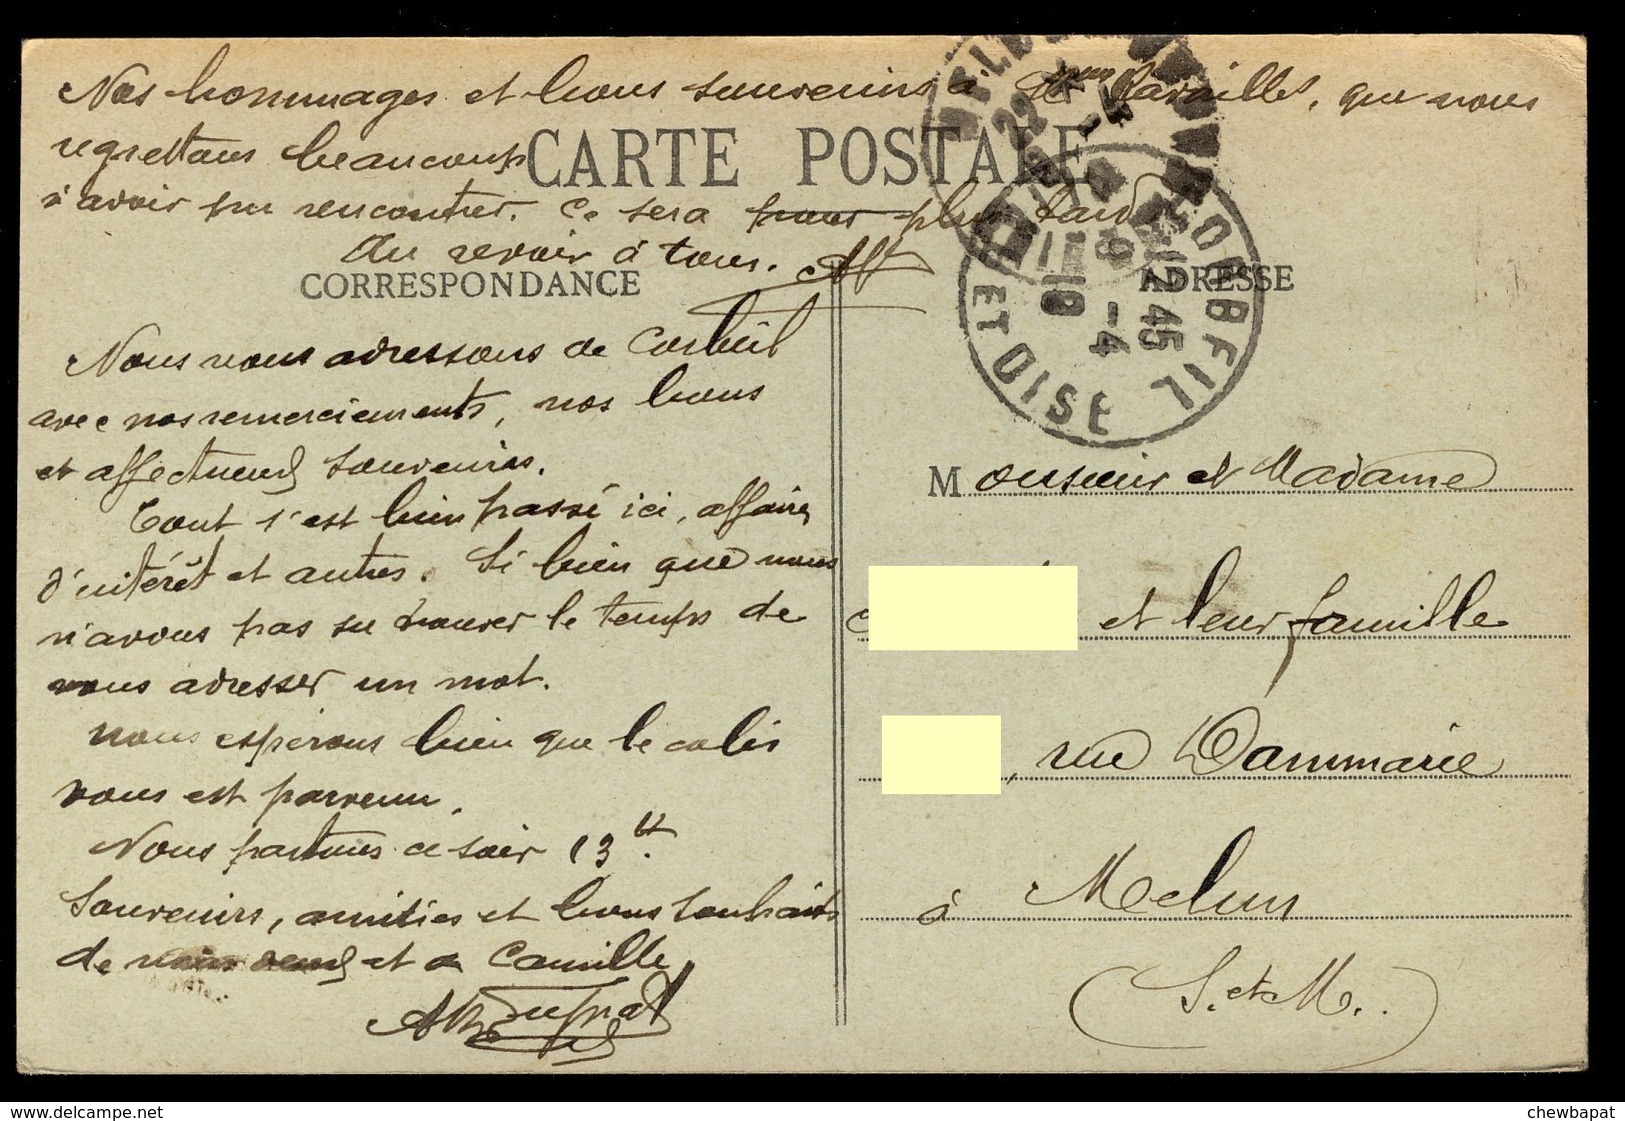 Nos hommages et bons souvenirs à Mme Navailles, que nous
regrettons beaucoup
CARTE POSTALE
n'avoir pu rencontrer. Ce sera pour plus tard
Au revoir à tous.
CORRESPONDANCE
Nous vous adressons de Corbeil
avec nos remerciements, nos bons
et affectueux souvenirs.
Tout s'est bien passé ici, affaires
d'intérêt et autres. Si bien que nous
n'avons pas su trouver le temps de
vous adresser un mot.
Nous espérons bien que le colis
vous est parvenu.
Nous partons ce soir 13 ct.
Souvenirs, amitiés et bons souhaits
de nous deux et à Camille
Duprat
CORBEIL
ET OISE
1745
-4
19
22
ADRESSE
Monsieur et Madame
et leur famille
, rue Dammarie
à Melun
(S. et M.)
www.delcampe.net
chewbapat